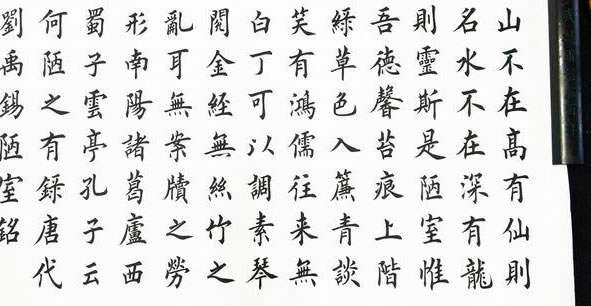 山不在髙有仙則
名水不在深有龍
則靈斯是陋室惟
吾德馨苔痕上階
綠草色入簾青談
笑有鴻儒往来無
白丁可以調素琴
閱金経無絲竹之
亂耳無案牘之勞
形南陽諸葛廬西
蜀子雲亭孔子云
何陋之有録唐代
劉禹錫陋室銘